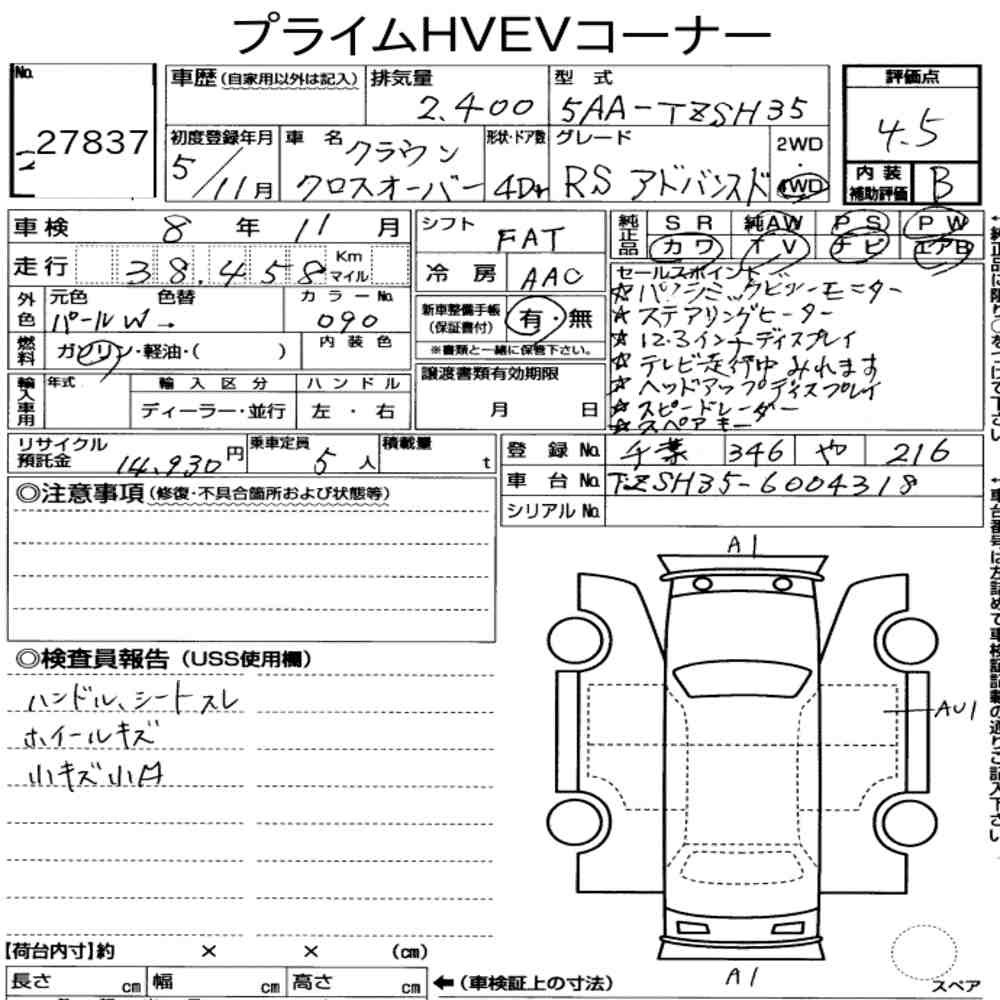 プライムHVEVコーナー
No.
27837
車歴 (自家用以外は記入)
排気量
2.400
型式
5AA-TZSH35
評価点
4.5
内装補助評価 B
初度登録年月
5/11月
車名
クラウン
クロスオーバー
形状・ドア数
4Dr
グレード
RS アドバンスド
2WD
・
4WD
車検 8年 11月
走行 38,458 Km マイル
シフト
FAT
冷房 AAC
純正品 SR 純AW PS PW
カワ TV ナビ エアB
外色 元色 色替 カラーNo.
パールW → 090
燃料 ガソリン・軽油・( ) 内装色
新車整備手帳 (保証書付) 有・無
※書類と一緒に保管下さい。
セールスポイント
☆パノラミックビューモニター
☆ステアリングヒーター
☆12.3インチディスプレイ
☆テレビ走行中みれます
☆ヘッドアップディスプレイ
☆スピードレーダー
☆スペアキー
輸入車用 年式 輸入区分 ハンドル
ディーラー・並行 左・右
譲渡書類有効期限
月 日
リサイクル預託金 14,930円
乗車定員 5人
積載量 t
登録No. 千葉 346 や 216
車台No. TZSH35-6004318
シリアルNo.
◎注意事項 (修復・不具合箇所および状態等)
◎検査員報告 (USS使用欄)
ハンドル、シートスレ
ホイールキズ
小キズ小凹
A1
AU1
A1
スペア
【荷台内寸】約 × × (cm)
長さ cm 幅 cm 高さ cm ←(車検証上の寸法)